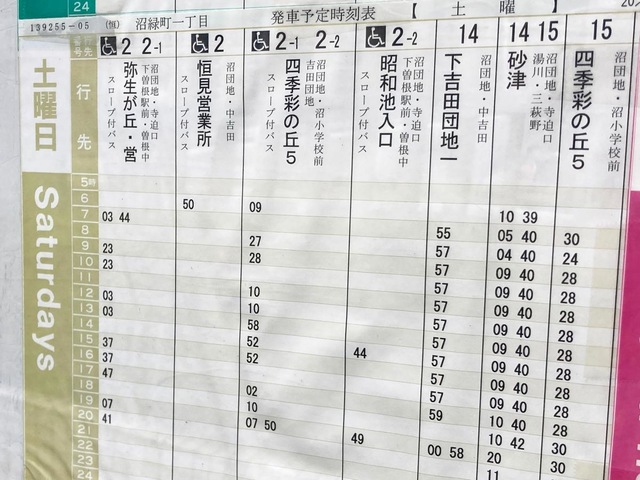 24
139255-05 (恒) 沼緑町一丁目 発車予定時刻表 【 土 曜 】
土曜日
Saturdays
行先
2 2-1
沼団地・寺迫口
下曽根駅前・曽根中
弥生が丘・営
スロープ付バス
2
沼団地・中吉田
恒見営業所
スロープ付バス
2-1 2-2
沼団地・沼小学校前
吉田団地
四季彩の丘5
スロープ付バス
2-2
沼団地・寺迫口
下曽根駅前・曽根中
昭和池入口
スロープ付バス
14
沼団地・中吉田
下吉田団地一
14 15
沼団地・寺迫口
湯川・三萩野
砂津
15
沼団地・沼小学校前
四季彩の丘5
5時
6
7
8
9
10
11
12
13
14
15
16
17
18
19
20
21
22
23
24
03 44
23
23
03
03
37
37
47
07
41
50
09
27
28
10
10
58
52
52
02
10
07 50
44
49
55
57
57
57
57
57
57
57
57
57
59
00 58
10 39
05 40
04 40
09 40
09 40
09 40
09 40
09 40
09 40
09 40
09 40
10 40
10 42
20
11
30
24
28
28
28
28
28
28
28
28
28
30
30